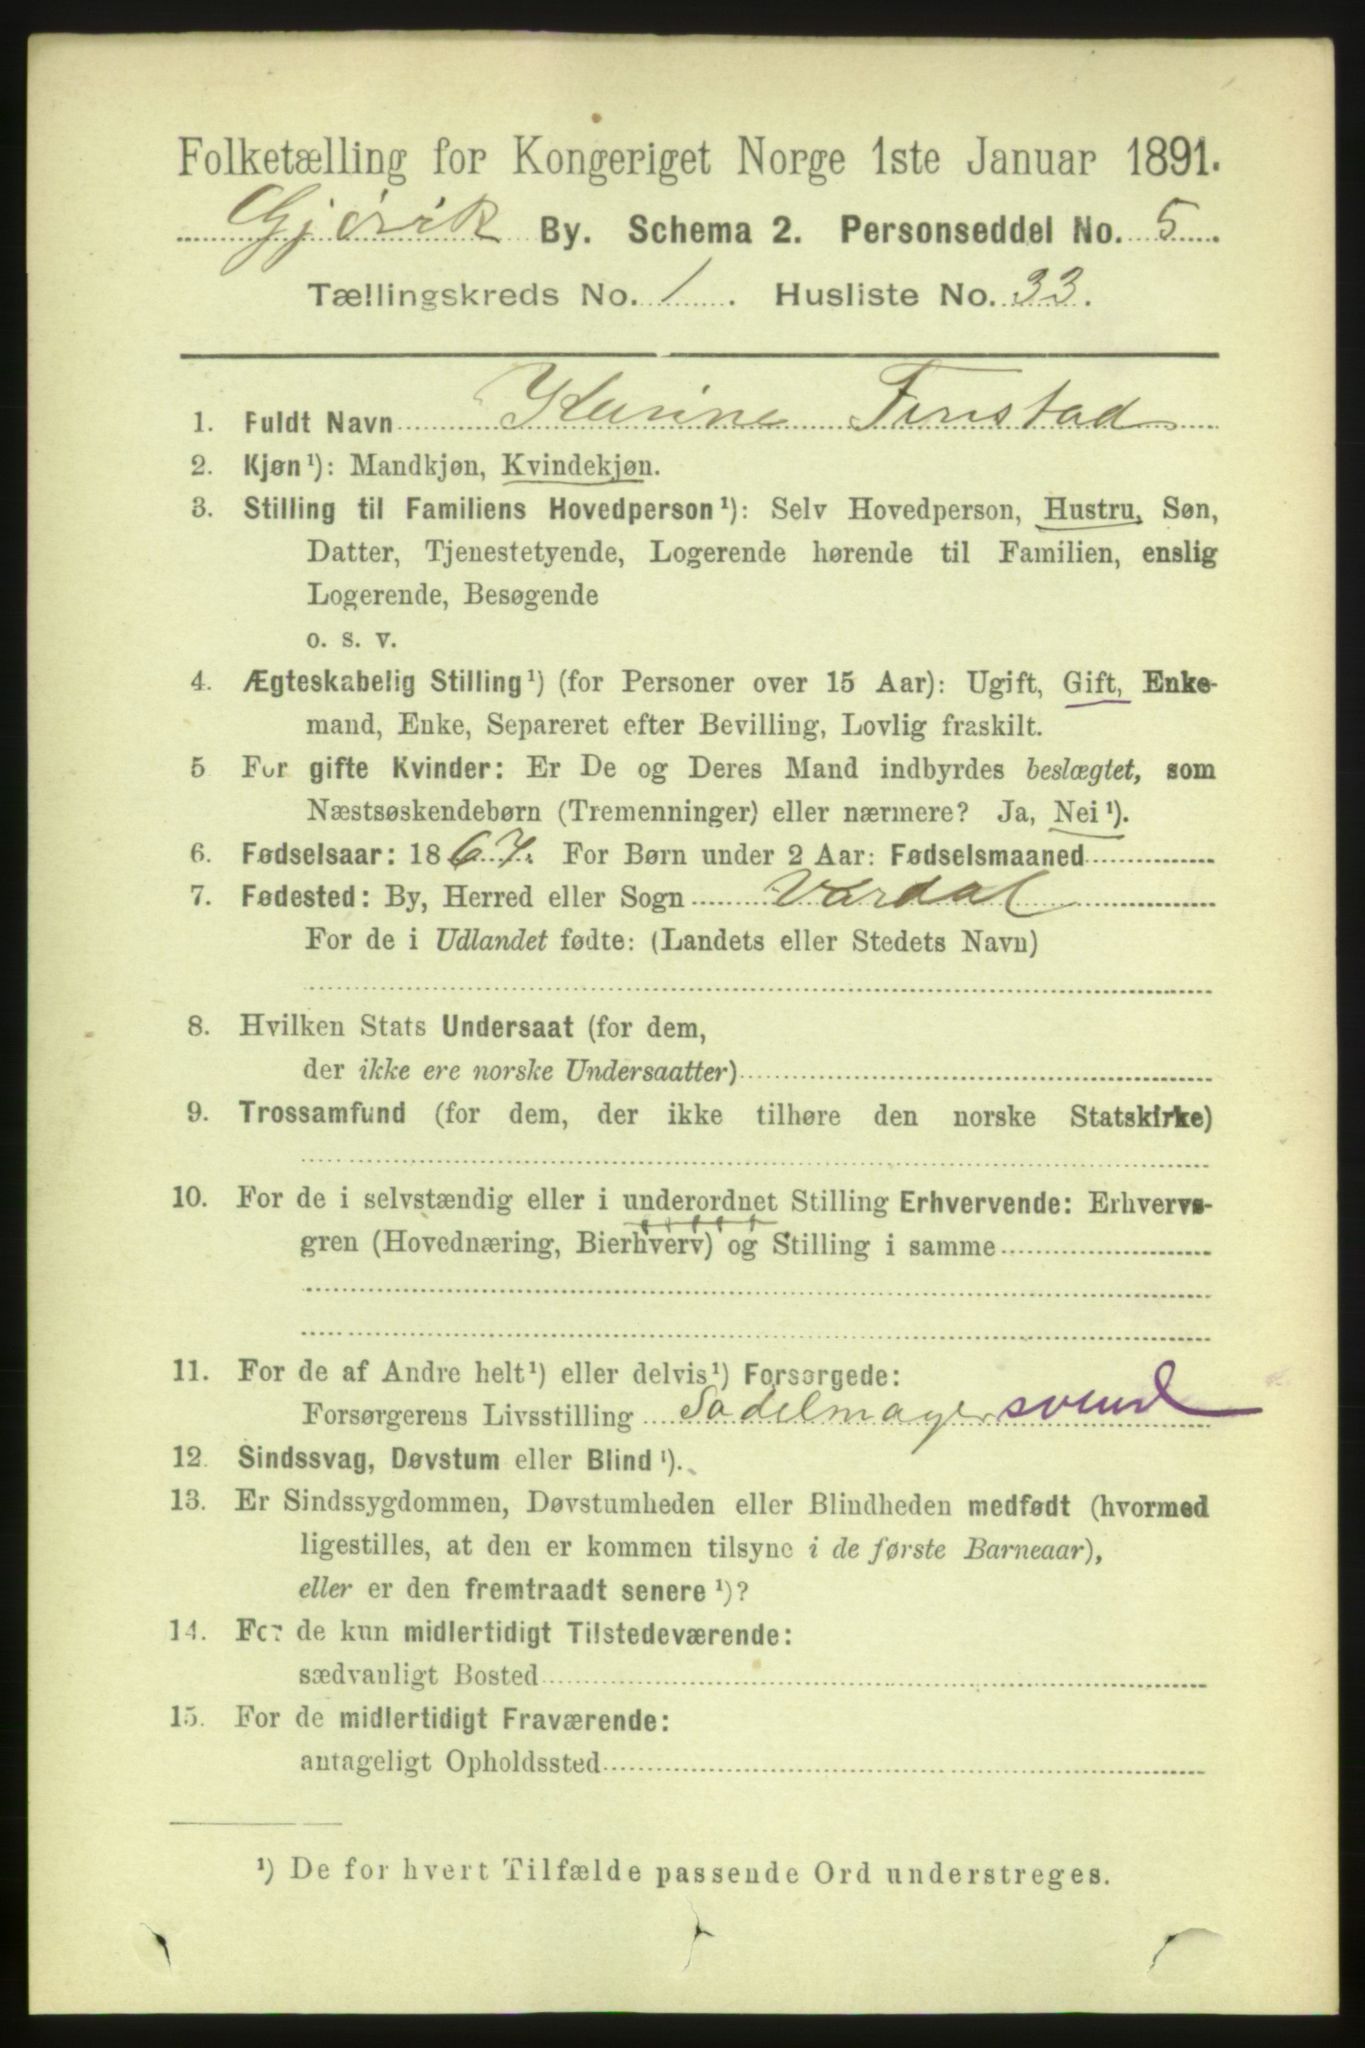 Folketælling for Kongeriget Norge 1ste Januar 1891.
Gjøvik By. Schema 2. Personseddel No. 5.
Tællingskreds No. 1. Husliste No. 33.
1. Fuldt Navn Karine Finstad
2. Kjøn¹): Mandkjøn, Kvindekjøn.
3. Stilling til Familiens Hovedperson¹): Selv Hovedperson, Hustru, Søn,
Datter, Tjenestetyende, Logerende hørende til Familien, enslig
Logerende, Besøgende
o. s. v.
4. Ægteskabelig Stilling¹) (for Personer over 15 Aar): Ugift, Gift, Enke-
mand, Enke, Separeret efter Bevilling, Lovlig fraskilt.
5 For gifte Kvinder: Er De og Deres Mand indbyrdes beslægtet, som
Næstsøskendebørn (Tremenninger) eller nærmere? Ja, Nei¹).
6. Fødselsaar: 1867. For Børn under 2 Aar: Fødselsmaaned
7. Fødested: By, Herred eller Sogn Vardal
For de i Udlandet fødte: (Landets eller Stedets Navn)
8. Hvilken Stats Undersaat (for dem,
der ikke ere norske Undersaatter)
9. Trossamfund (for dem, der ikke tilhøre den norske Statskirke)
10. For de i selvstændig eller i underordnet Stilling Erhvervende: Erhvervs-
gren (Hovednæring, Bierhverv) og Stilling i samme
11. For de af Andre helt¹) eller delvis¹) Forsørgede:
Forsørgerens Livsstilling Sadelmagersvend
12. Sindssvag, Døvstum eller Blind¹).
13. Er Sindssygdommen, Døvstumheden eller Blindheden medfødt (hvormed
ligestilles, at den er kommen tilsyne i de første Barneaar),
eller er den fremtraadt senere¹)?
14. For de kun midlertidigt Tilstedeværende:
sædvanligt Bosted
15. For de midlertidigt Fraværende:
antageligt Opholdssted
¹) De for hvert Tilfælde passende Ord understreges.